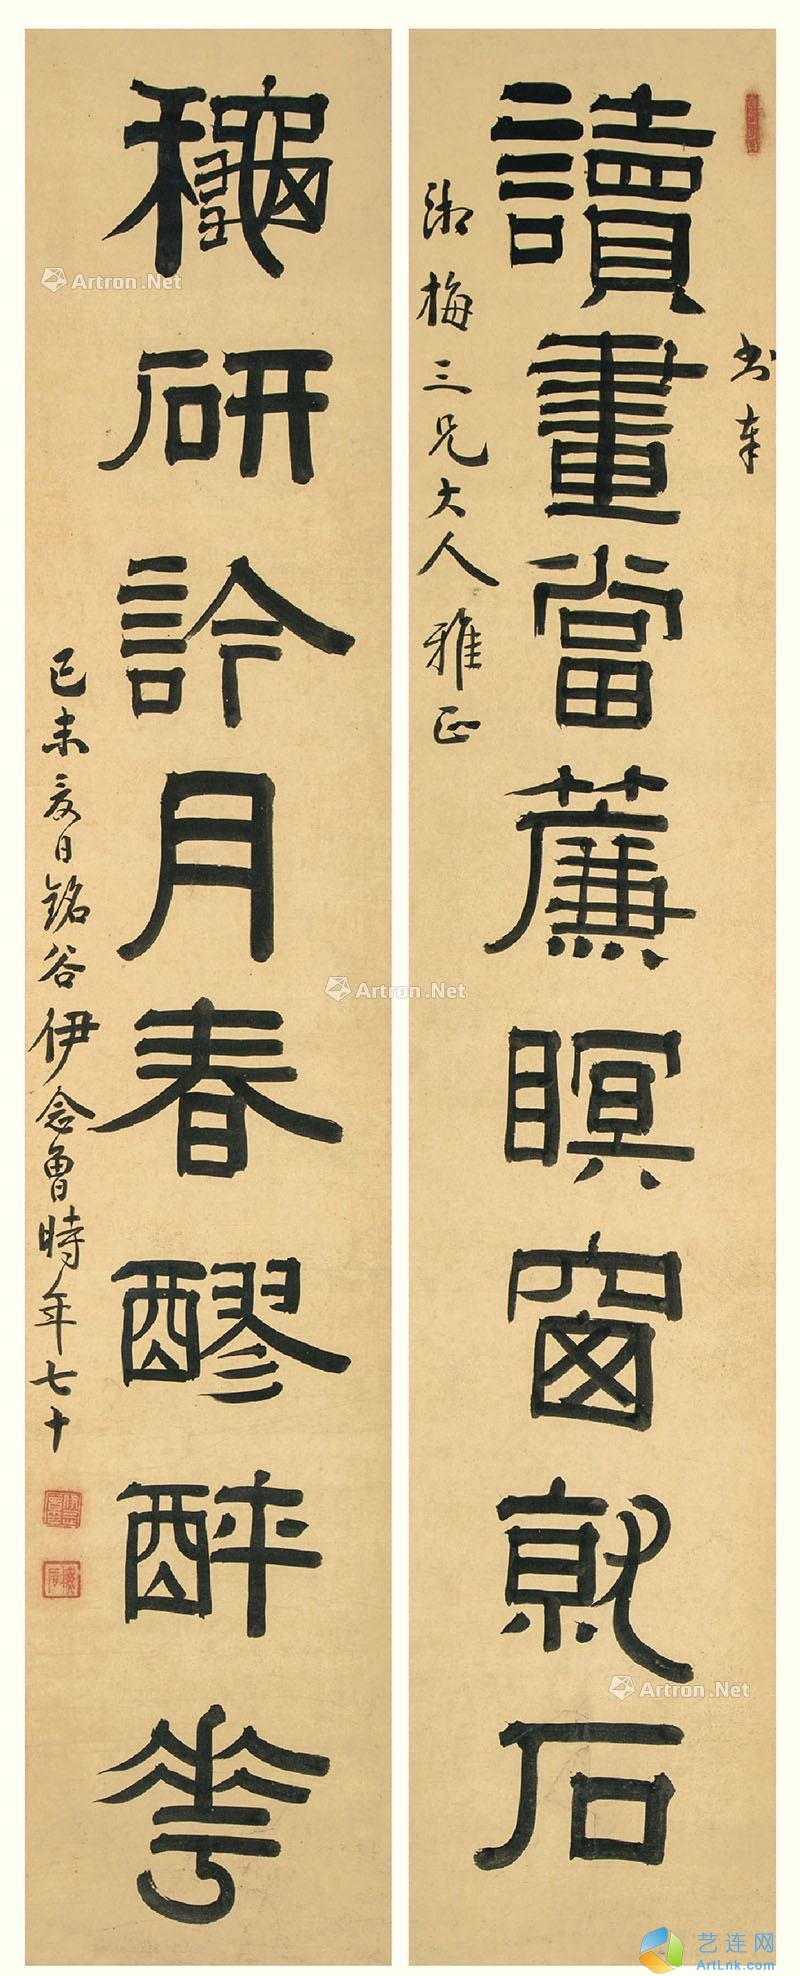 書奉
讀畫當薕瞑窗就石
湘梅三兄大人雅正
龝研訡月春醪醉華
己未夏日銘谷伊念曾時年七十
Artron.Net
Artron.Net
Artron.Net
艺连网
ArtLnk.com